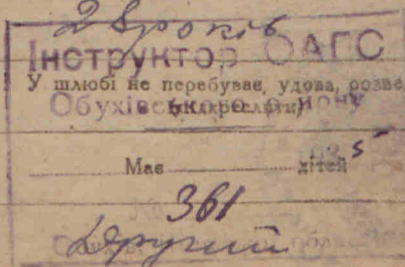 28 років
Інструктор ОАГС
У шлюбі не перебуває, удова, розве
Обухівського району
(підкреслити)
Має дітей 5
361
Другий